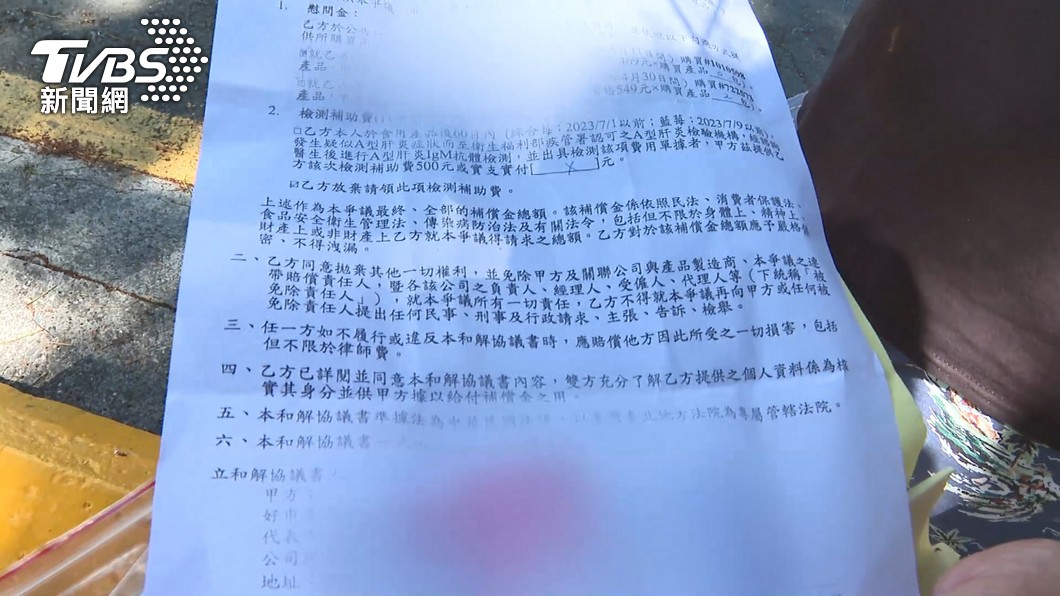 TVBS
新聞網
1. 慰問金：
乙方於公
供所購買
購買#1010598
產品
4月30日間）購買#722973
產品
549元×購買產品
2. 檢測補助費
□乙方本人於食用產品後60日內（綜合莓：2023/7/1以前；藍莓：2023/7/9以前），
發生疑似A型肝炎症狀而至衛生福利部疾管署認可之A型肝炎檢驗機構，
醫生後進行A型肝炎IgM抗體檢測，並出具檢測該項費用單據者，甲方茲提供乙
方該次檢測補助費500元或實支實付[ X ]元。
☑乙方放棄請領此項檢測補助費。
上述作為本爭議最終、全部的補償金總額。該補償金係依照民法、消費者保護法、
食品安全衛生管理法、傳染病防治法及有關法令，包括但不限於身體上、精神上、
財產上或非財產上乙方就本爭議得請求之總額。乙方對於該補償金總額應予嚴格保
密、不得洩漏。
二、乙方同意拋棄其他一切權利，並免除甲方及關聯公司與產品製造商、本爭議之連
帶賠償責任人，暨各該公司之負責人、經理人、受僱人、代理人等（下統稱「被
免除責任人」），就本爭議所有一切責任，乙方不得就本爭議再向甲方或任何被
免除責任人提出任何民事、刑事及行政請求、主張、告訴、檢舉。
三、任一方如不履行或違反本和解協議書時，應賠償他方因此所受之一切損害，包括
但不限於律師費。
四、乙方已詳閱並同意本和解協議書內容，雙方充分了解乙方提供之個人資料係為核
實其身分並供甲方據以給付補償金之用。
五、本和解協議書準據法為中華民國法律，以臺灣臺北地方法院為專屬管轄法院。
六、本和解協議書一式
立和解協議書
甲方：
好市
代表
公司
地址